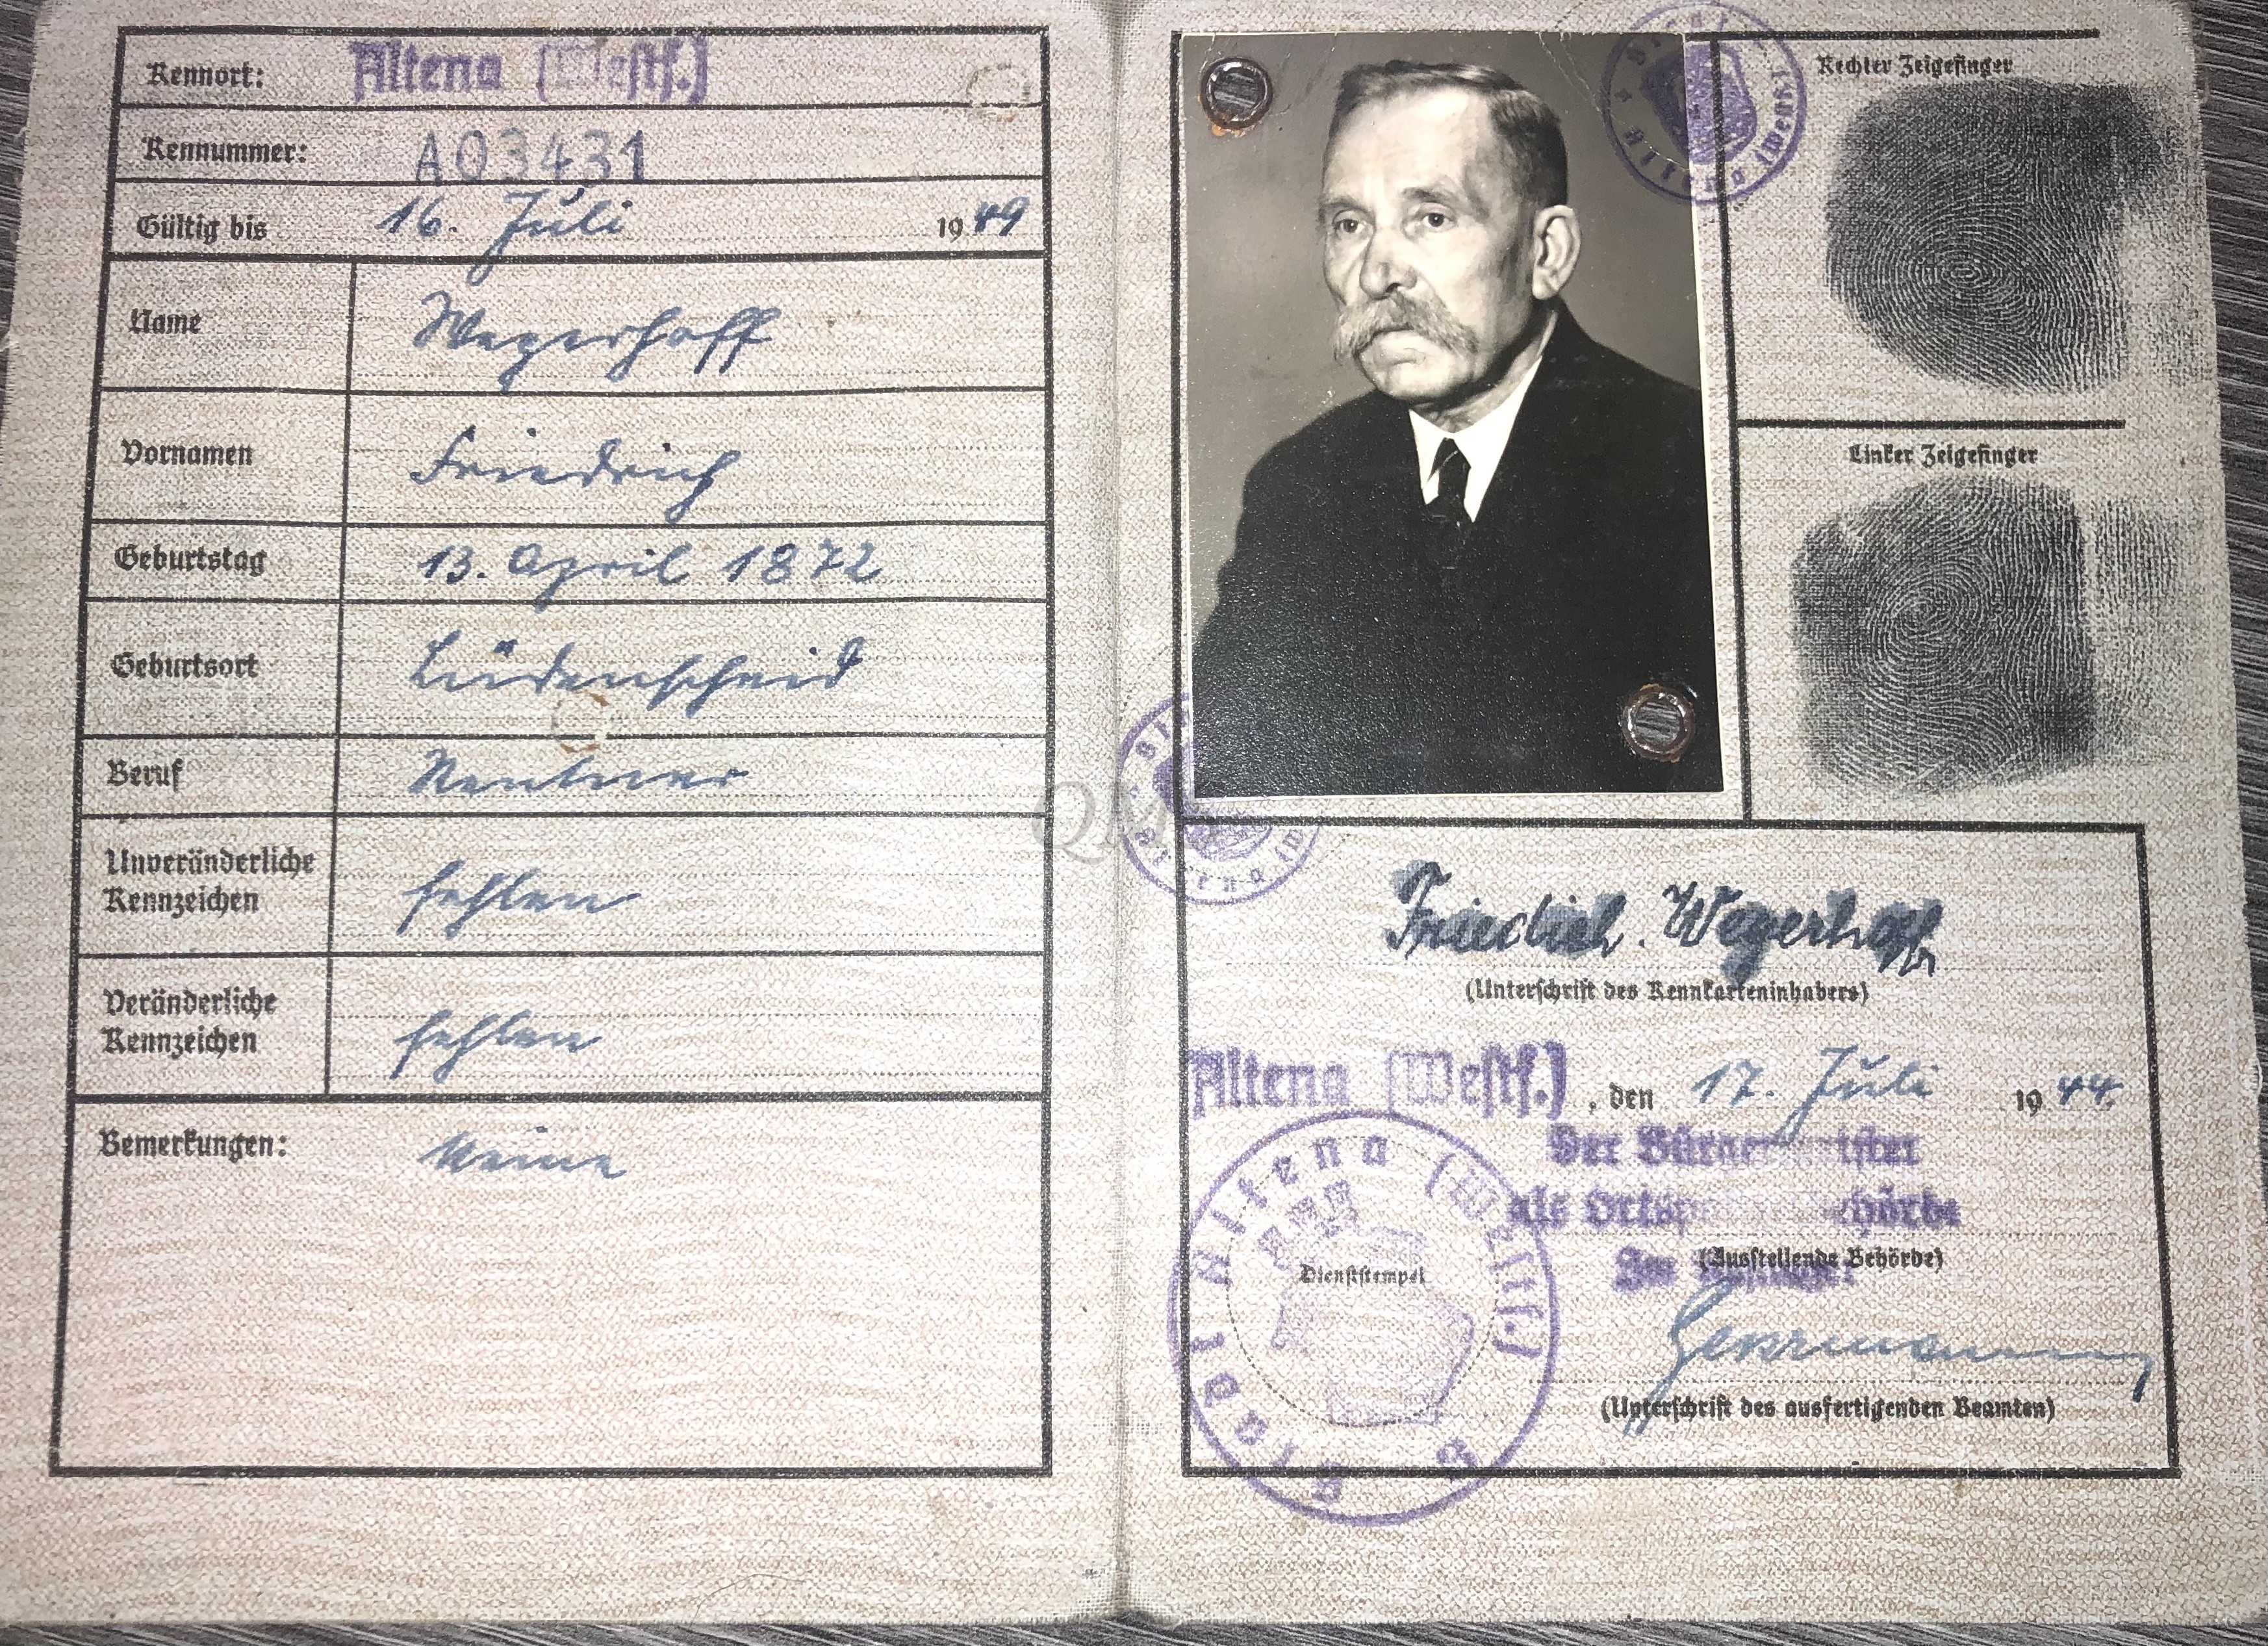 Kennort: Altena (Westf.)
Kennummer: A03431
Gültig bis 16. Juli 1949
Name Wegerhoff
Vornamen Friedrich
Geburtstag 13. April 1872
Geburtsort Lüdenscheid
Beruf Rentner
Unveränderliche
Kennzeichen fehlen
Veränderliche
Kennzeichen fehlen
Bemerkungen: Keine
Rechter Zeigefinger
Linker Zeigefinger
Stadt Altena (Westf.)
Friedrich. Wegerhoff
(Unterschrift des Kennkarteninhabers)
Altena (Westf.), den 17. Juli 1944.
Der Bürgermeister
als
(Ausstellende Behörde)
Stadt Altena (Westf.)
Dienststempel
(Unterschrift des ausfertigenden Beamten)